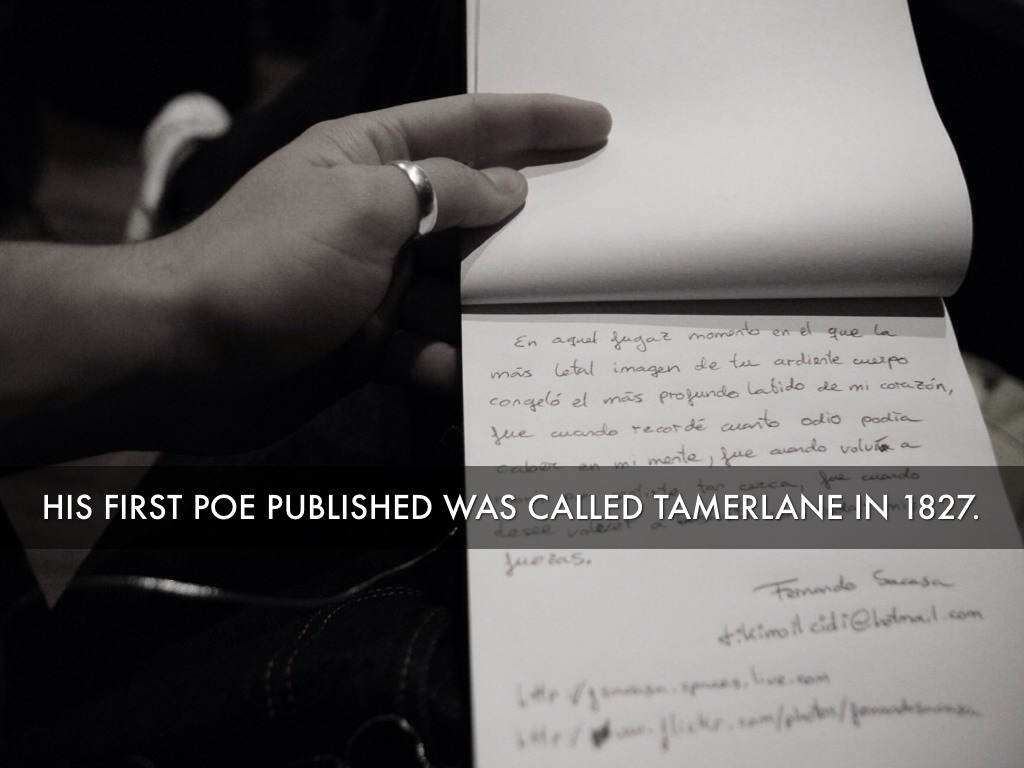 En aquel fugaz momento en el que la
más letal imagen de tu ardiente cuerpo
congeló el más profundo latido de mi corazón,
fue cuando recordé cuanto odio podía
caber en mi mente, fue cuando volvía a
tan cerca, fue cuando
HIS FIRST POE PUBLISHED WAS CALLED TAMERLANE IN 1827.
desee volver a
fuerzas.
Fernando Sacasa
tikimoilcidi@hotmail.com
http://fsacasa.spaces.live.com
flickr.com/photos/fernandosacasa